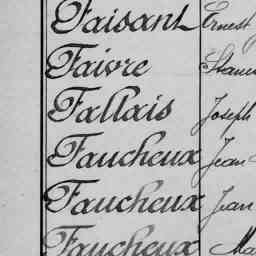 Faisant Ernest
Faivre
Fallais Joseph
Faucheux Jean
Faucheux Jean
Faucheux